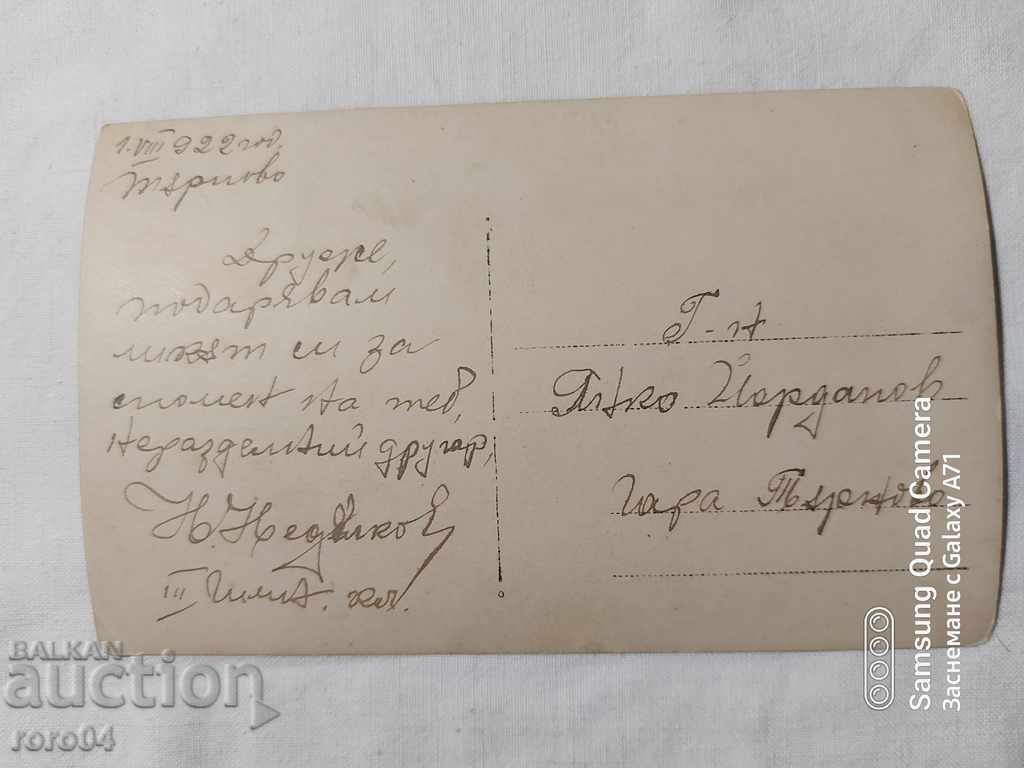 1. VIII 922 год.
Търново
Друже,
подарявам
ликът си за
спомен на теб,
неразделний другар,
Н. Недѣлковъ
III гимн. кл.
Г-н
Пѣнко Йорданов
гара Търново
BALKAN
auction
roro04
Samsung Quad Camera
Заснемане с Galaxy A71